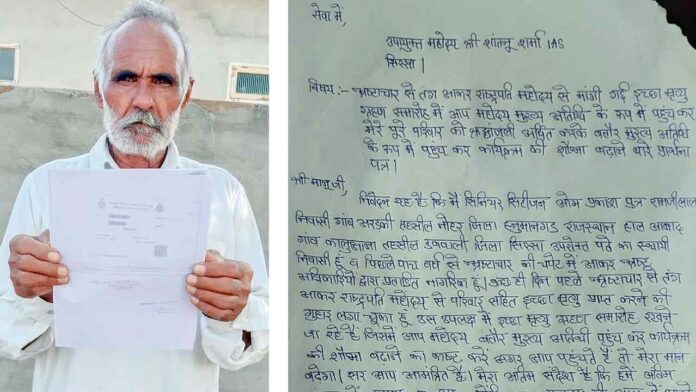 सेवा में,
उपायुक्त महोदय श्री शांतनु शर्मा IAS
सिरसा।
विषय:- भ्रष्टाचार से तंग आकर राष्ट्रपति महोदय से मांगी गई इच्छा मृत्यु
ग्रहण समारोह में आप महोदय मुख्य अतिथि के रूप में पहुंच कर
मेरे पुरे परिवार को श्रद्धाजली अर्पित करके बतौर मुख्य अतिथी
के रूप में पहुंच कर कार्यक्रम की शौभा बढाने बारे प्रार्थना
पत्र।
श्री मान् जी,
निवेदन यह है कि मैं सिनियर सिटीजन ओम प्रकाश पुत्र रामजीलाल
निवासी गांव अरड़की तहसील नोहर जिला हनुमानगढ राजस्थान हाल आबाद
गांव कालुआना तहसील डबवाली जिला सिरसा उपरोक्त पते का स्थायी
निवासी हूं व पिछले पांच वर्ष से भ्रष्टाचार की चपेट में आकर भ्रष्ट
अधिकारियों द्वारा प्रताड़ित नागरिक हूं। कुछ ही दिन पहले भ्रष्टाचार से तंग
आकर राष्ट्रपति महोदय से परिवार सहित इच्छा मृत्यु प्राप्त करने की
गुहार लगा चुका हूं उस उपलक्ष में इच्छा मृत्यु ग्रहण समारोह रखने
जा रहे हैं जिसमें आप महोदय बतौर मुख्य अतिथी पहुंच कर कार्यक्रम
की शौभा बढाने का कष्ट करें अगर आप पहुंचते हैं तो मेरा मान
बढेगा। सर आप आमंत्रित हैं। मेरा अंतिम संदेश है कि हमें अंतिम